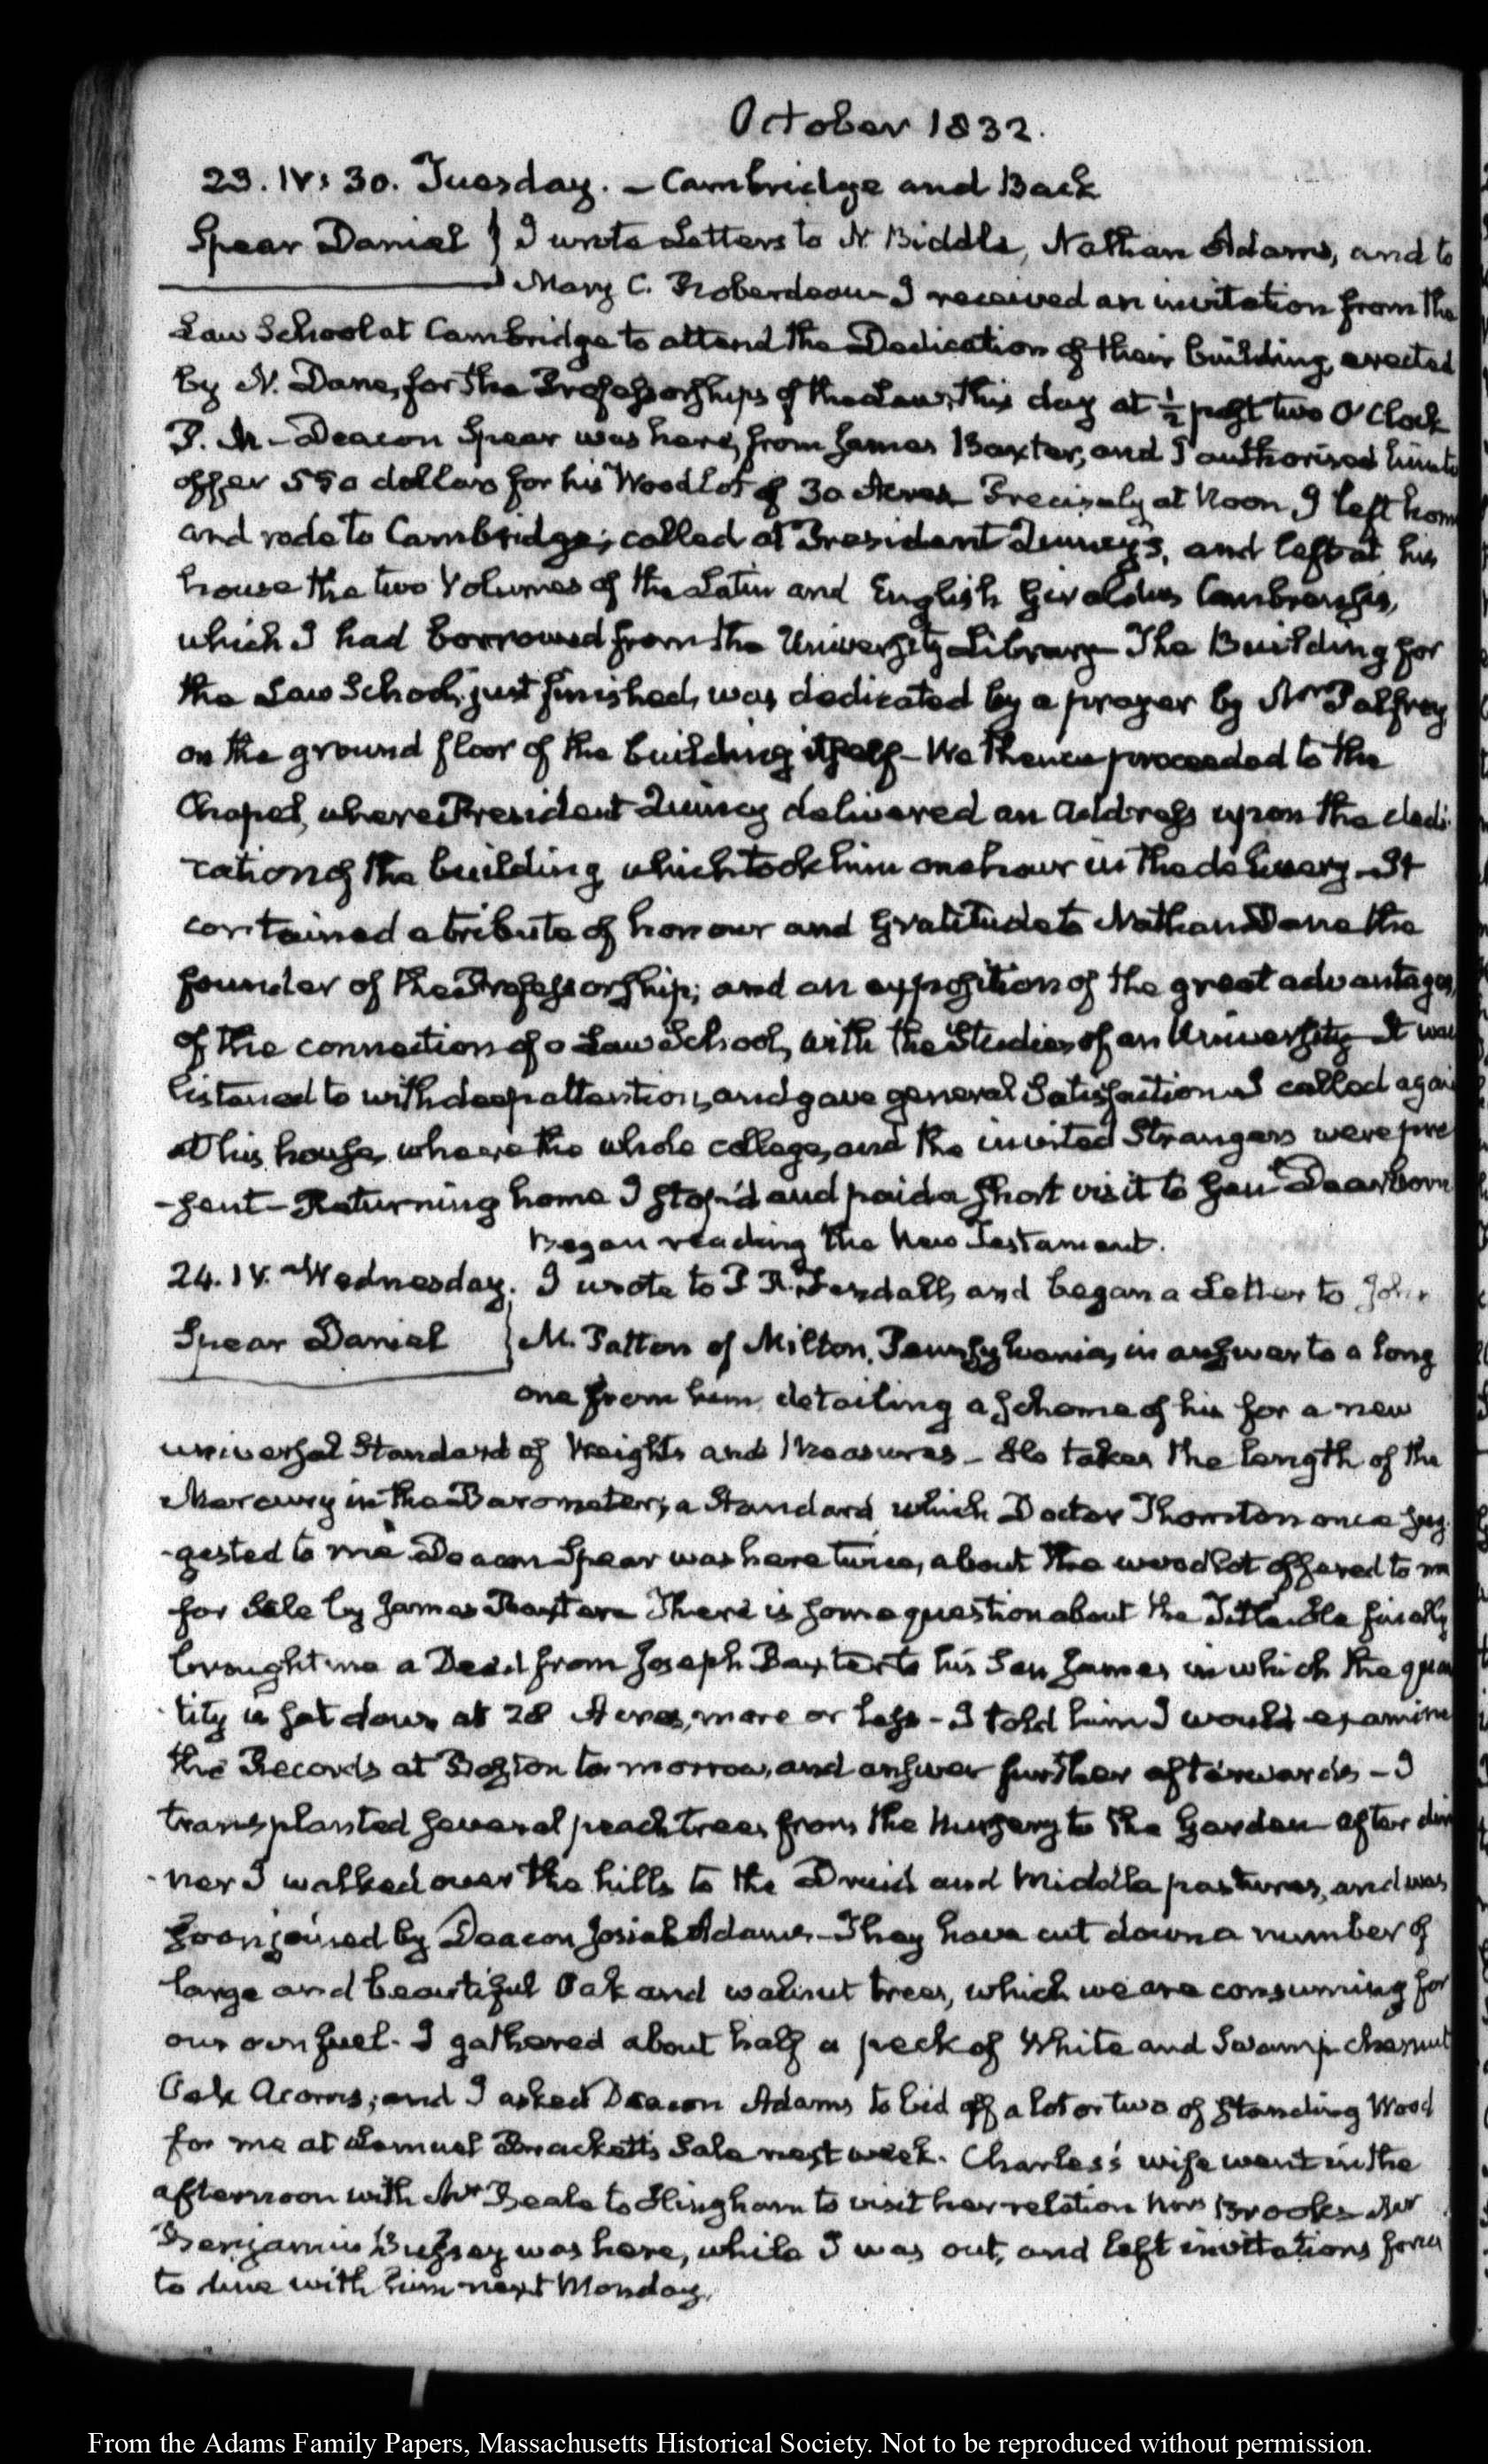 October 1832.
23. IV: 30. Tuesday. — Cambridge and Back
Spear Daniel } I wrote Letters to N. Biddle, Nathan Adams, and to
Mary C. Roberdeau — I received an invitation from the
Law School at Cambridge to attend the Dedication of their building, erected
by N. Dane, for the Professorships of the Law, this day at ½ past two O'Clock
P.M — Deacon Spear was here, from James Baxter, and I authorised him to
offer 550 dollars for his Wood lot of 30 Acres — Precisely at Noon, I left hom
and rode to Cambridge; called at President Quincy's, and left at his
house the two Volumes of the Latin and English Giraldus Cambrensis,
which I had borrowed from the University Library — The Building for
the Law School, just finished, was dedicated by a prayer by Mr Palfrey
on the ground floor of the building itself — We thence proceeded to the
Chapel, where President Quincy delivered an address upon the dedi-
cation of the building, which took him one hour in the delivery. It
contained a tribute of honour and gratitude to Nathan Dane the
founder of the Professorship; and an exposition of the great advantages,
of the connection of a Law School, with the Studies of an University — It was
listened to with deep attention, and gave general Satisfaction. I called agai
at his house, where the whole college, and the invited Strangers were pre
-sent — Returning home I stop'd and paid a short visit to Genl Dearborn
Began reading the New Testament.
24. IV. Wednesday. I wrote to P. R. Fendall, and began a Letter to John
Spear Daniel } M. Patton of Milton, Pennsylvania, in answer to a long
one from him detailing a scheme of his for a new
universal Standard of Weights and Measures — He takes the length of the
Mercury in the Barometer; a Standard which Doctor Thornton once sug-
-gested to me. Deacon Spear was here twice, about the woodlot offered to m
for Sale by James Baxter — There is some question about the Title. He finally
brought me a Deed from Joseph Baxter to his Son James, in which the quan
-tity is set down at 28 Acres, more or less — I told him I would examine
the Records at Boston to-morrow, and answer further afterwards — I
transplanted several peach trees from the Nursery to the Garden — after din
-ner I walked over the hills to the Druid and Middle pastures, and was
soon joined by Deacon Josiah Adams — They have cut down a number of
large and beautiful Oak and walnut trees, which we are consuming for
our own fuel. I gathered about half a peck of White and Swamp chesnut
Oak Acorns; and I asked Deacon Adams to bid off a lot or two of standing Wood
for me at Lemuel Brackett's Sale next week. Charles's wife went in the
afternoon with Mr Beale to Hingham to visit her relation Mrs Brooks — Mr
Benjamin Bussey was here, while I was out, and left invitations for us
to dine with him next Monday.
From the Adams Family Papers, Massachusetts Historical Society. Not to be reproduced without permission.